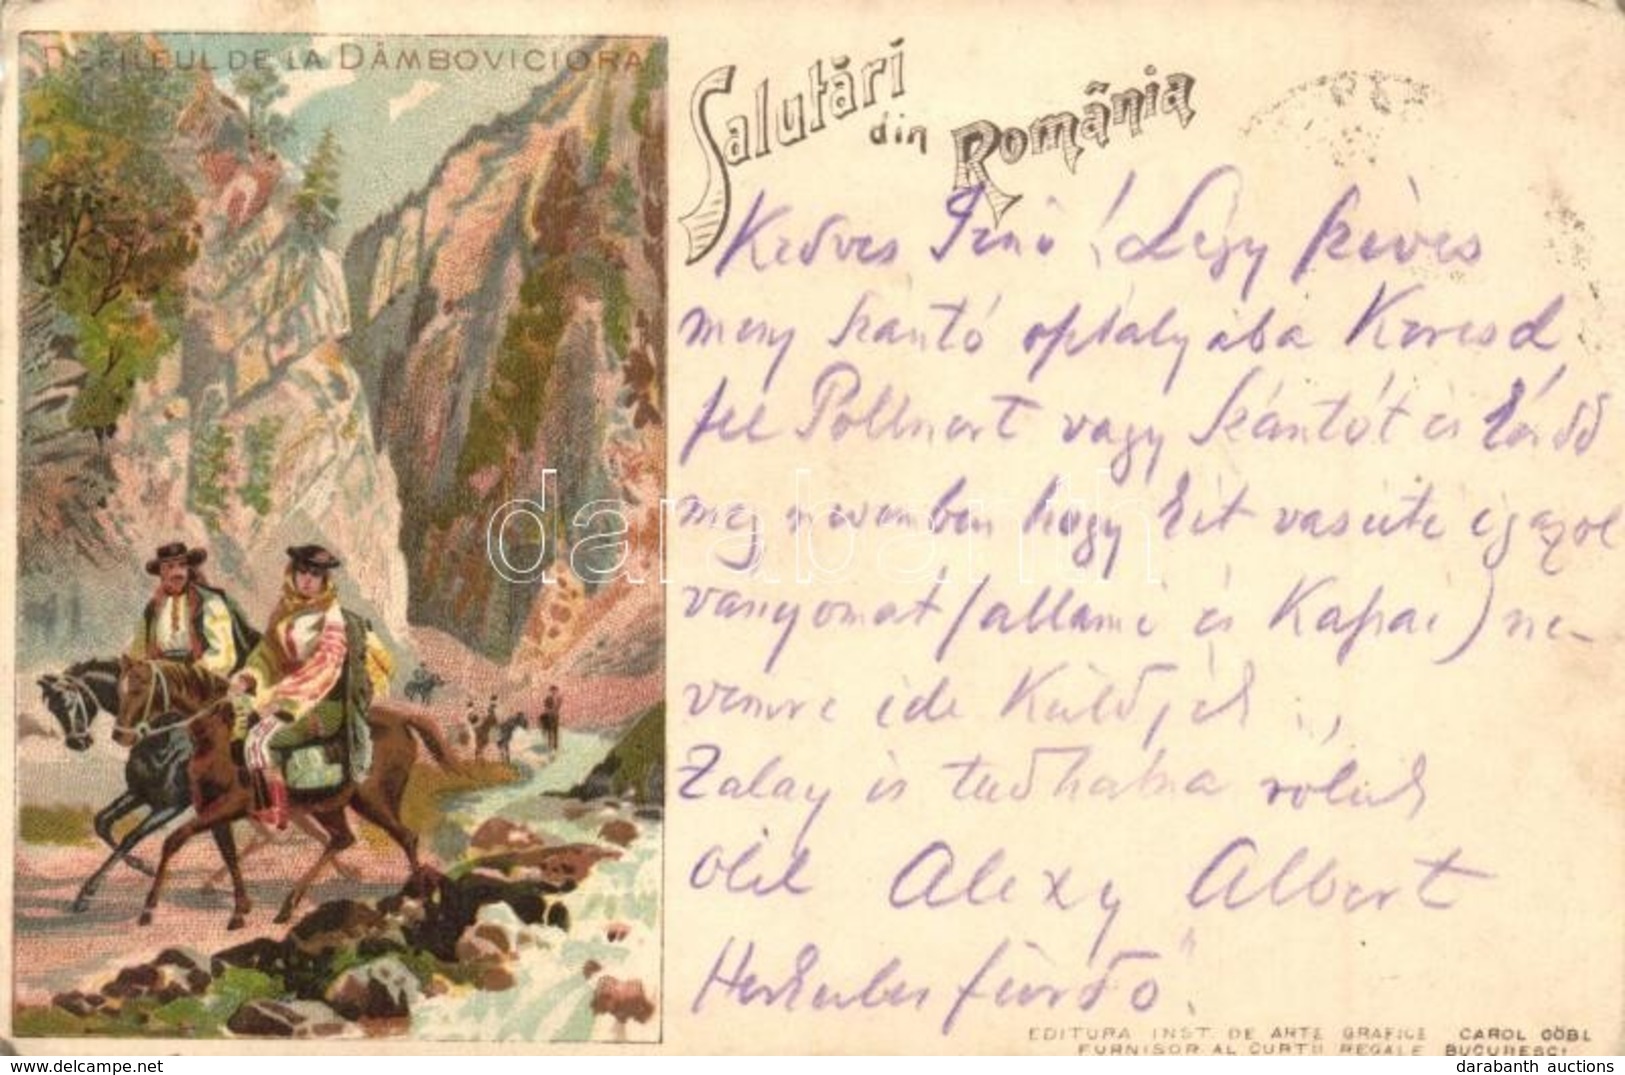 DEFILEUL DE LA DÂMBOVICIORA
Salutări
din România
Kedves Jenő! Légy szíves
menj Szántó osztályába Keresd
fel Pollnert vagy Szántót és kérdd
meg nevemben hogy két vasúti igazol
ványomat (állami és Kassai) ne-
vemre ide küldjék.
Zalay is tudhatna róluk
ölel Alexy Albert
Herkules fürdő
darabanth
EDITURA INST. DE ARTE GRAFICE CAROL GÖBL
FURNISOR AL CURTII REGALE BUCURESCI
darabanth auctions